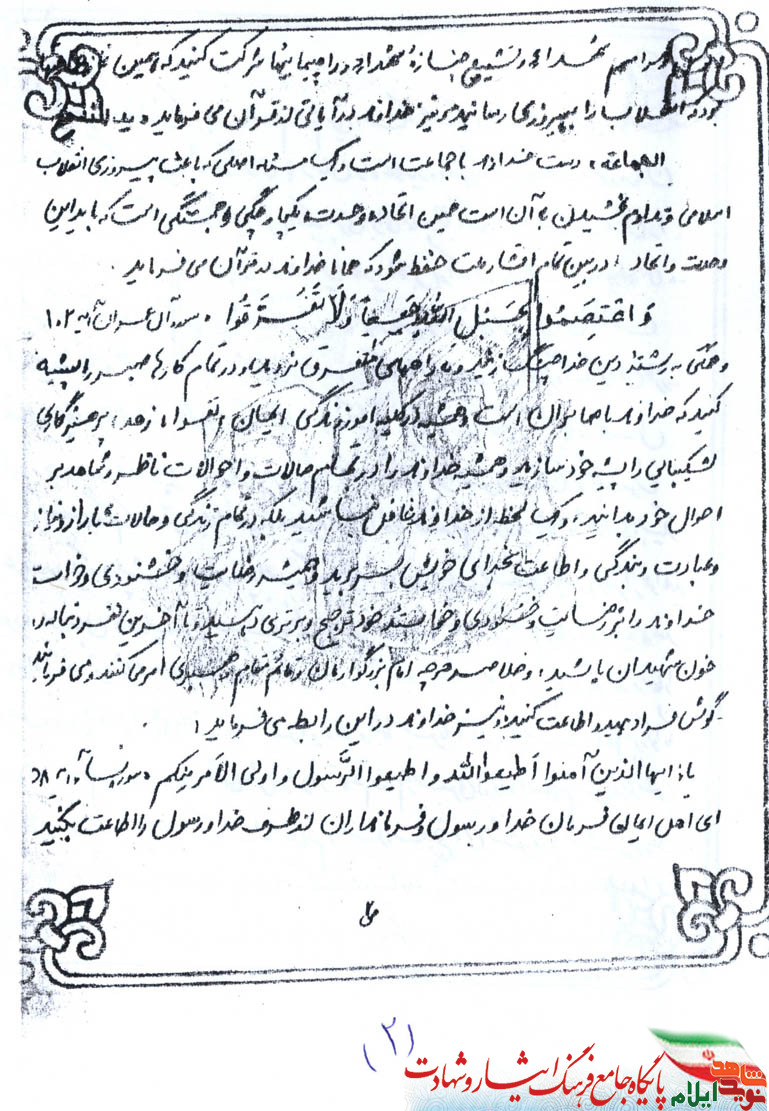 مراسم شهداء و تشییع جنازهٔ شهداء و راهپیمائیها شرکت کنید که همین
بود که انقلاب را به پیروزی رسانید و نیز خداوند در آیاتی از قرآن می فرماید « ید الله مع
الجماعة » دست خداوند با جماعت است و یک مسئله اصلی که باعث پیروزی انقلاب
اسلامی و تداوم بخشیدن به آن است همین اتحاد و وحدت و یکپارچگی و همبستگی است که باید این
وحدت و اتحاد در بین تمام اقشار ملت حفظ شود که همانا خداوند در قرآن می فرماید .
وَ اعْتَصِمُوا بِحَبْلِ اللهِ جَمیعاً وَلَا تَفَرَّقُوا . سوره آل عمران آیه ۱۰۲
و همگی به رشته دین خدا چنگ زنید و به راههای متفرق نروید و در تمام کارها صبر را پیشه
کنید که خداوند با صابران است و همیشه در کلیه امور زندگی ایمان ، تقوا ، زهد ، پرهیزگاری
شکیبایی را پیشه خود سازید و همیشه خداوند را در تمام حالات و احوالات ناظر و شاهد بر
احوال خود بدانید ، و یک لحظه از خداوند غافل نباشید بلکه در تمام زندگی و حالات با راز و نیاز
و عبادت و بندگی و اطاعت خدای خویش بسر برید و همیشه رضایت و خشنودی و خواست
خداوند را بر رضایت و خشنودی و خواسته خود ترجیح و برتری دهید و تا آخرین نفر دنباله رو
خون شهیدان باشید ، و خلاصه هر چه امام بزرگوارمان و قائم مقام رهبری امر می کنند و می فرمایند
گوش فرا دهید و اطاعت کنید و نیز خداوند در این رابطه می فرماید :
یا ایها الذین آمنوا اَطیعوا الله و اطیعوا الرَّسول و اولی الاَمر منکم . سوره نساء آیه ۵۸
ای اهل ایمان فرمان خدا و رسول و فرمانداران از طرف خدا و رسول را اطاعت بکنید
(۲)
پایگاه جامع فرهنگ ایثار و شهادت
نوید شاهد
ایلام